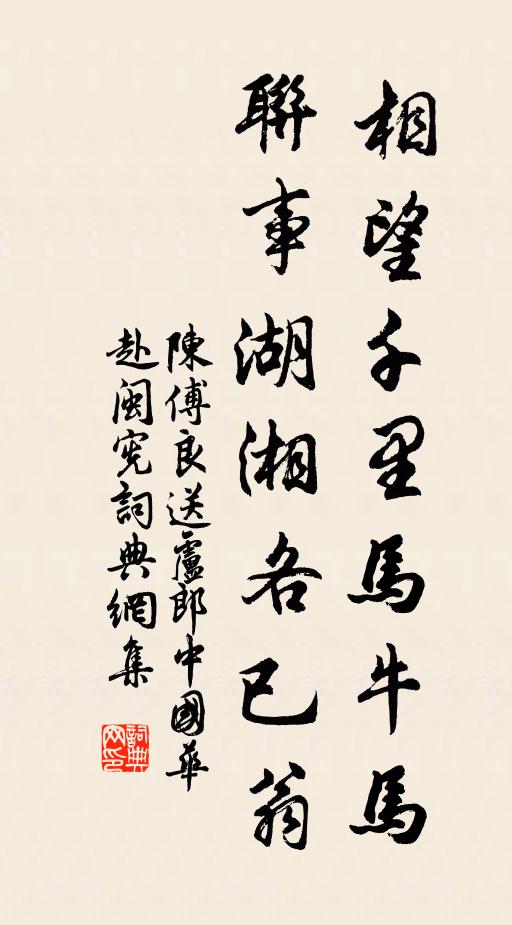 相望千里馬牛馬
聯事湖湘各已翁
陳傅良送盧郎中國華
赴閩憲詞典網集
詞典网印